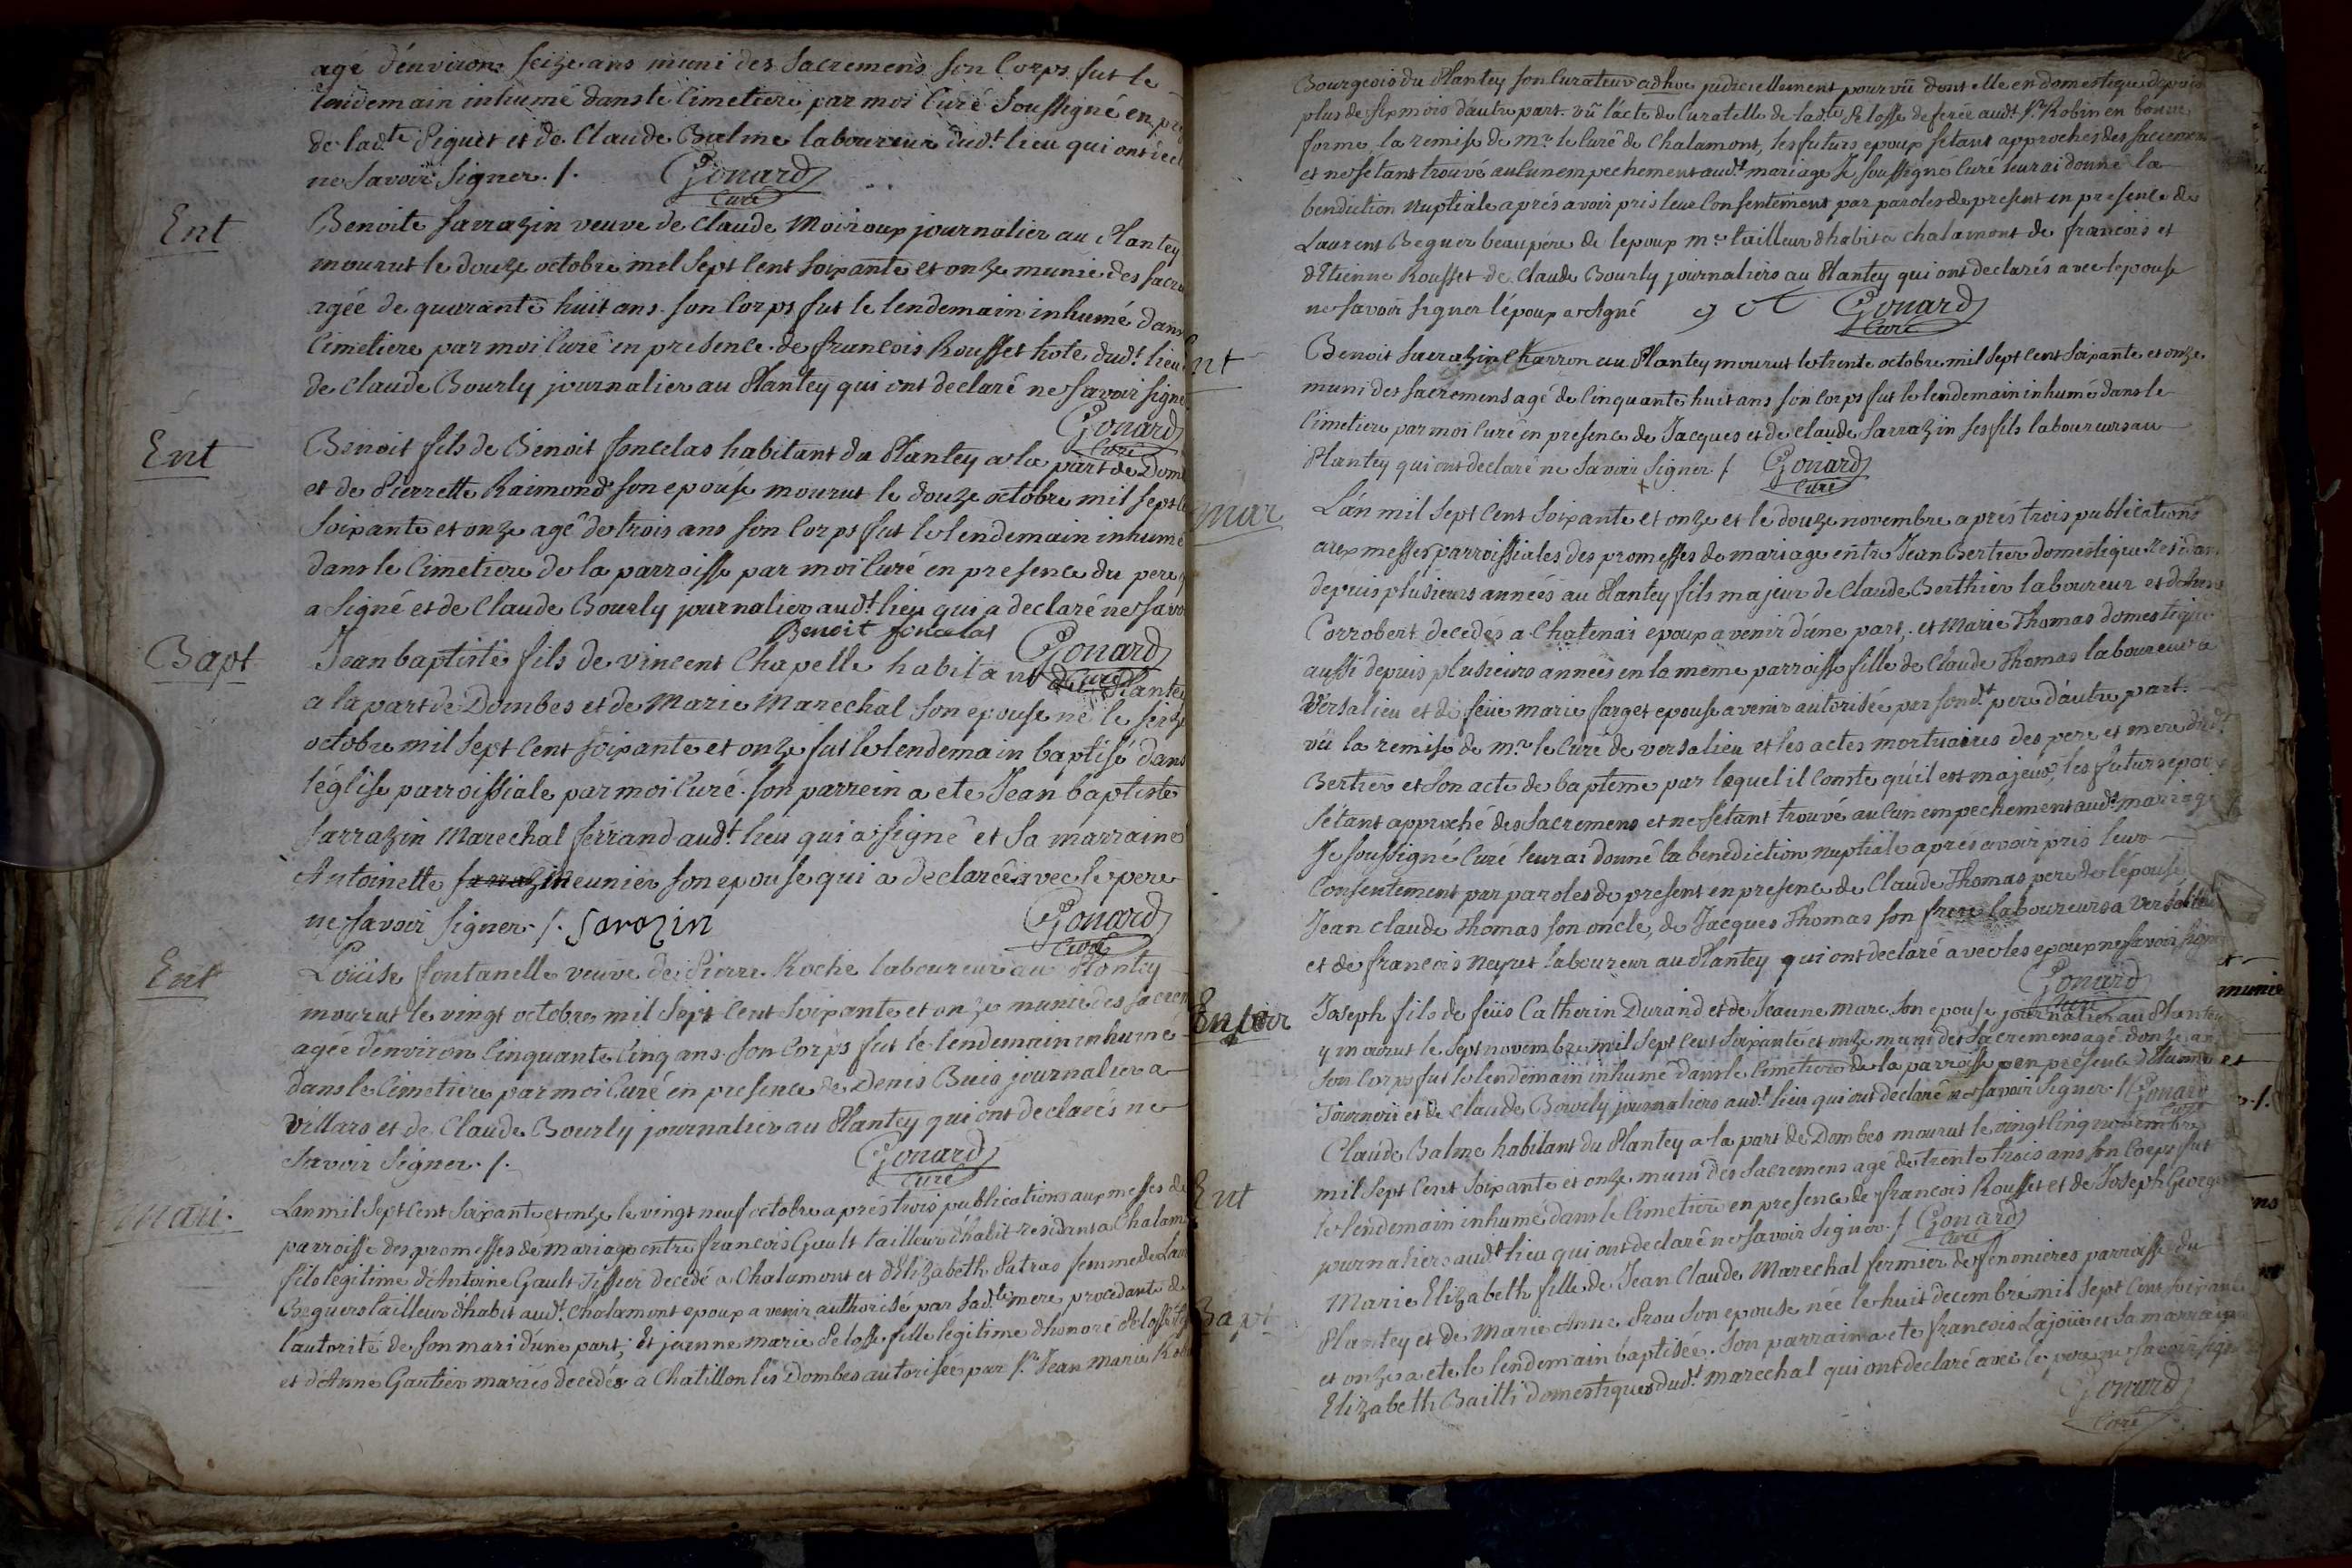 agé d'environ seize ans muni des Sacremens son Corps fut le
lendemain inhumé dans le Cimetiere par moi Curé Soussigné en
de lad.te Piquet et de Claude Balme laboureur dud.t lieu qui ont
ne Savoir Signer ./. Gonard
Curé
Ent
Benoite Sarrazin veuve de Claude Moiroux journalier au Plantey
mourut le douze octobre mil Sept Cent Soixante et onze munie des
agée de quarante huit ans. son Corps fut le lendemain inhumé dans
Cimetiere par moi Curé en presence de francois Rousset hote dud.t lieu
de Claude Bourly journalier au Plantey qui ont declaré ne Savoir signe
Gonard
Curé
Ent
Benoit fils de Benoit foncelas habitant du Plantey a la part de Dom
et de Pierrette Raimond son epouse mourut le douze octobre mil sept
Soixante et onze agé de trois ans son Corps fut le lendemain inhumé
dans le Cimetiere de la parroisse par moi Curé en presence du pere
a Signé et de Claude Bourly journalier aud.t lieu qui a declaré ne Savo
Benoit foncelas Gonard
Curé
Bapt
Jean baptiste fils de vincent Chapelle habitant du Plantey
a la part de Dombes et de Marie Marechal son epouse né le seize
octobre mil Sept Cent soixante et onze fut le lendemain baptisé dans
l'église parroissiale par moi Curé. son parrein a ete Jean baptiste
Sarrazin Marechal ferrand aud.t lieu qui a signé et Sa marraine
Antoinette sarrazin meunier son epouse qui a declarée avec le pere
ne Savoir Signer ./. Sarozin Gonard
Curé
Ent
Loüise fontanelle veuve de Pierre Roche laboureur au Plantey
mourut le vingt octobre mil Sept Cent Soixante et onze munie des sacrem
agée d'environ Cinquante Cinq ans. son Corps fut le lendemain inhumé
dans le Cimetiere par moi Curé en presence de Denis Buis journalier a
villars et de Claude Bourly journalier au Plantey qui ont declarés ne
Savoir Signer ./. Gonard
Curé
Mari.
L'an mil Sept Cent Soixante et onze le vingt neuf octobre aprés trois publications aux messes de
parroisse des promesses de mariage entre francois Gault tailleur d'habit residant a Chalam
fils legitime d'Antoine Gault Tissier decedé a Chalamont et d'Elizabeth Patras femme de Lau
Beguer tailleur d'habit aud.t Chalamont epoux a venir authorisé par Sad.te mere procedante de
l'autorité de son mari d'une part, Et jeanne marie Pelosse fille legitime d'honoré Pelosse
et d'Anne Gautier mariés decedés a Chatillon les Dombes autorisée par S.r Jean Marie Rob
Bourgeois du Plantey son Curateur ad hoc judiciellement pourvû dont elle en domestique depuis
plus de six mois d'autre part. vû l'acte de Curatelle de lad.te Pelosse deferée aud.t S.r Robin en bonne
forme, la remise de M.r le Curé de Chalamont, les futurs epoux s'etant approchés des Sacremens
et ne s'etant trouvé aucun empechement aud.t mariage Je soussigné Curé leur ai donné la
benediction nuptiale aprés avoir pris leur Consentement par paroles de present en presence de
Laurent Beguer beaupére de l'epoux m.e tailleur d'habit a Chalamont de francois et
d'Etienne Rousset de Claude Bourly journaliers au Plantey qui ont declarés avec l'epouse
ne Savoir signer l'époux a signé Gonard
Curé
Ent
Benoit Sarrazin Charron au Plantey mourut le trente octobre mil Sept Cent Soixante et onze
muni des Sacremens agé de Cinquante huit ans son Corps fut le lendemain inhumé dans le
Cimetiere par moi Curé en presence de Jacques et de Claude Sarrazin ses fils laboureurs au
Plantey qui ont declaré ne Savoir Signer ./. Gonard
Curé
Mar
L'an mil Sept Cent Soixante et onze et le douze novembre aprés trois publications
aux messes parroissiales des promesses de mariage entre Jean Bertier domestique residan
depuis plusieurs années au Plantey fils majeur de Claude Berthier laboureur et de
Corrobert decedés a Chatenai epoux a venir d'une part, et Marie Thomas domestique
aussi depuis plusieurs années en la meme parroisse fille de Claude Thomas laboureur a
Versalieu et de feüe marie farget epouse a venir autorisée par sond.t pere d'autre part.
vû la remise de M.r le Curé de versalieu et les actes mortuaires des pere et mere dud.t
Bertier et son acte de bapteme par lequel il Conste qu'il est majeur, les futurs epoux
s'étant approché des Sacremens et ne s'etant trouvé aucun empechement aud.t marriage
Je soussigné Curé leur ai donné la benediction nuptiale aprés avoir pris leur
Consentement par paroles de present en presence de Claude Thomas pere de l'épouse
Jean Claude Thomas son oncle, de Jacques Thomas son frere laboureurs a versalieu
et de francois Neyret laboureur au Plantey qui ont declaré avec les epoux ne savoir signer
Gonard
Curé
Joseph fils de feüs Catherin Durand et de Jeanne Marc son epouse journalier au Plantey
y mourut le Sept novembre mil Sept Cent Soixante et onze muni des Sacremens agé d'onze an
Son Corps fut le lendemain inhumé dans le Cimetiere de la parroisse en presence d'Etienne
Tournoir et de Claude Bourly journaliers aud.t lieu qui ont declaré ne savoir Signer ./. Gonard
Curé
Ent
Claude Balme habitant du Plantey a la part de Dombes mourut le vingt Cinq novembre
mil Sept Cent Soixante et onze muni des Sacremens agé de trente trois ans son Corps fut
le lendemain inhumé dans le Cimetiere en presence de francois Rousset et de Joseph George
journaliers aud.t lieu qui ont declaré ne Savoir Signer ./. Gonard
Curé
Bapt
Marie Elizabeth fille de Jean Claude Marechal fermier des fenonieres parroisse du
Plantey et de Marie Anne Prou son epouse née le huit decembre mil Sept Cent soixante
et onze a ete le lendemain baptisée. son parrain a ete francois Lajoüe et sa marraine
Elizabeth Bailli domestiques dud.t marechal qui ont declaré avec le pere ne savoir signer
Gonard
Curé
munie
et